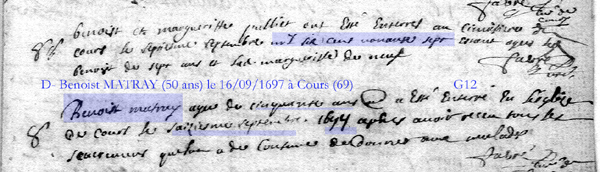 Benoist et margueritte ont Esté Enterrés au Cimetiere de
cours le septiesme septembre mil six cens nonante sept estant agés
benoist de sept ans et lad marguerite de neuf
D- Benoist MATRAY (50 ans) le 16/09/1697 à Cours (69) G12
Benoist matray agé de cinquante ans a Esté Enterré En leglise
De cours le saiziesme septembre 1697 apres avoir receu tous les
sacremens quelon a de Coustume de donner aux malades